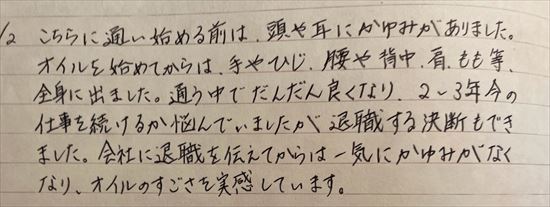 1/2 こちらに通い始める前は、頭や耳にかゆみがありました。
オイルを始めてからは、手やひじ、腰や背中、肩、もも等、
全身に出ました。通う中でだんだん良くなり、2〜3年今の
仕事を続けるか悩んでいましたが退職する決断もでき
ました。会社に退職を伝えてからは一気にかゆみがなく
なり、オイルのすごさを実感しています。